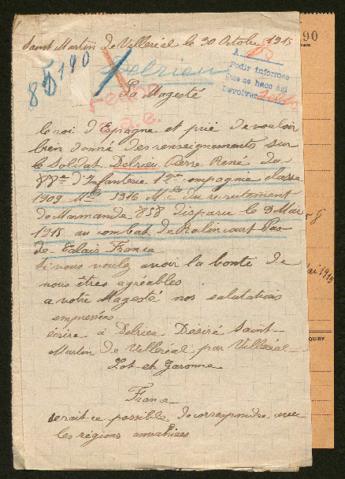 Saint Martin de Villeréal le 30 Octobre 1915
85190
Delrieu
Pedir informes
que se hace así
Sa Magesté
le roi d'Espagne et prié de vouloir
bien donné des renseignements sur
le Soldat Delrieu Pierre René du
d'Infanterie 12me compagnie classe
1909 Mle 1316 Mc du recrutement
de Marmande 858 disparu le 9 Mai
1915 au combat de Roclincourt Pas
de Calais France
si vous voulez avoir la bonté de
nous êtres agreables
a votre Magesté nos salutations
empressées
écrire à Delrieu Désiré Saint-
Martin de Villeréal par Villéréal
Lot et Garonne
France
serait ce possible de correspondre avec
les régions envahies
90